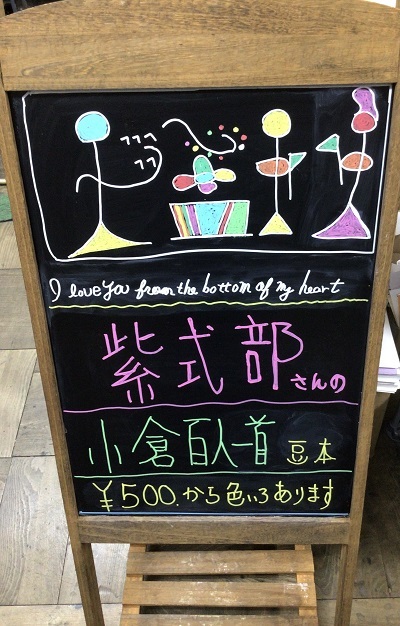 I love you from the bottom of my heart
紫式部さんの
小倉百人一首 豆本
¥500.から色いろあります